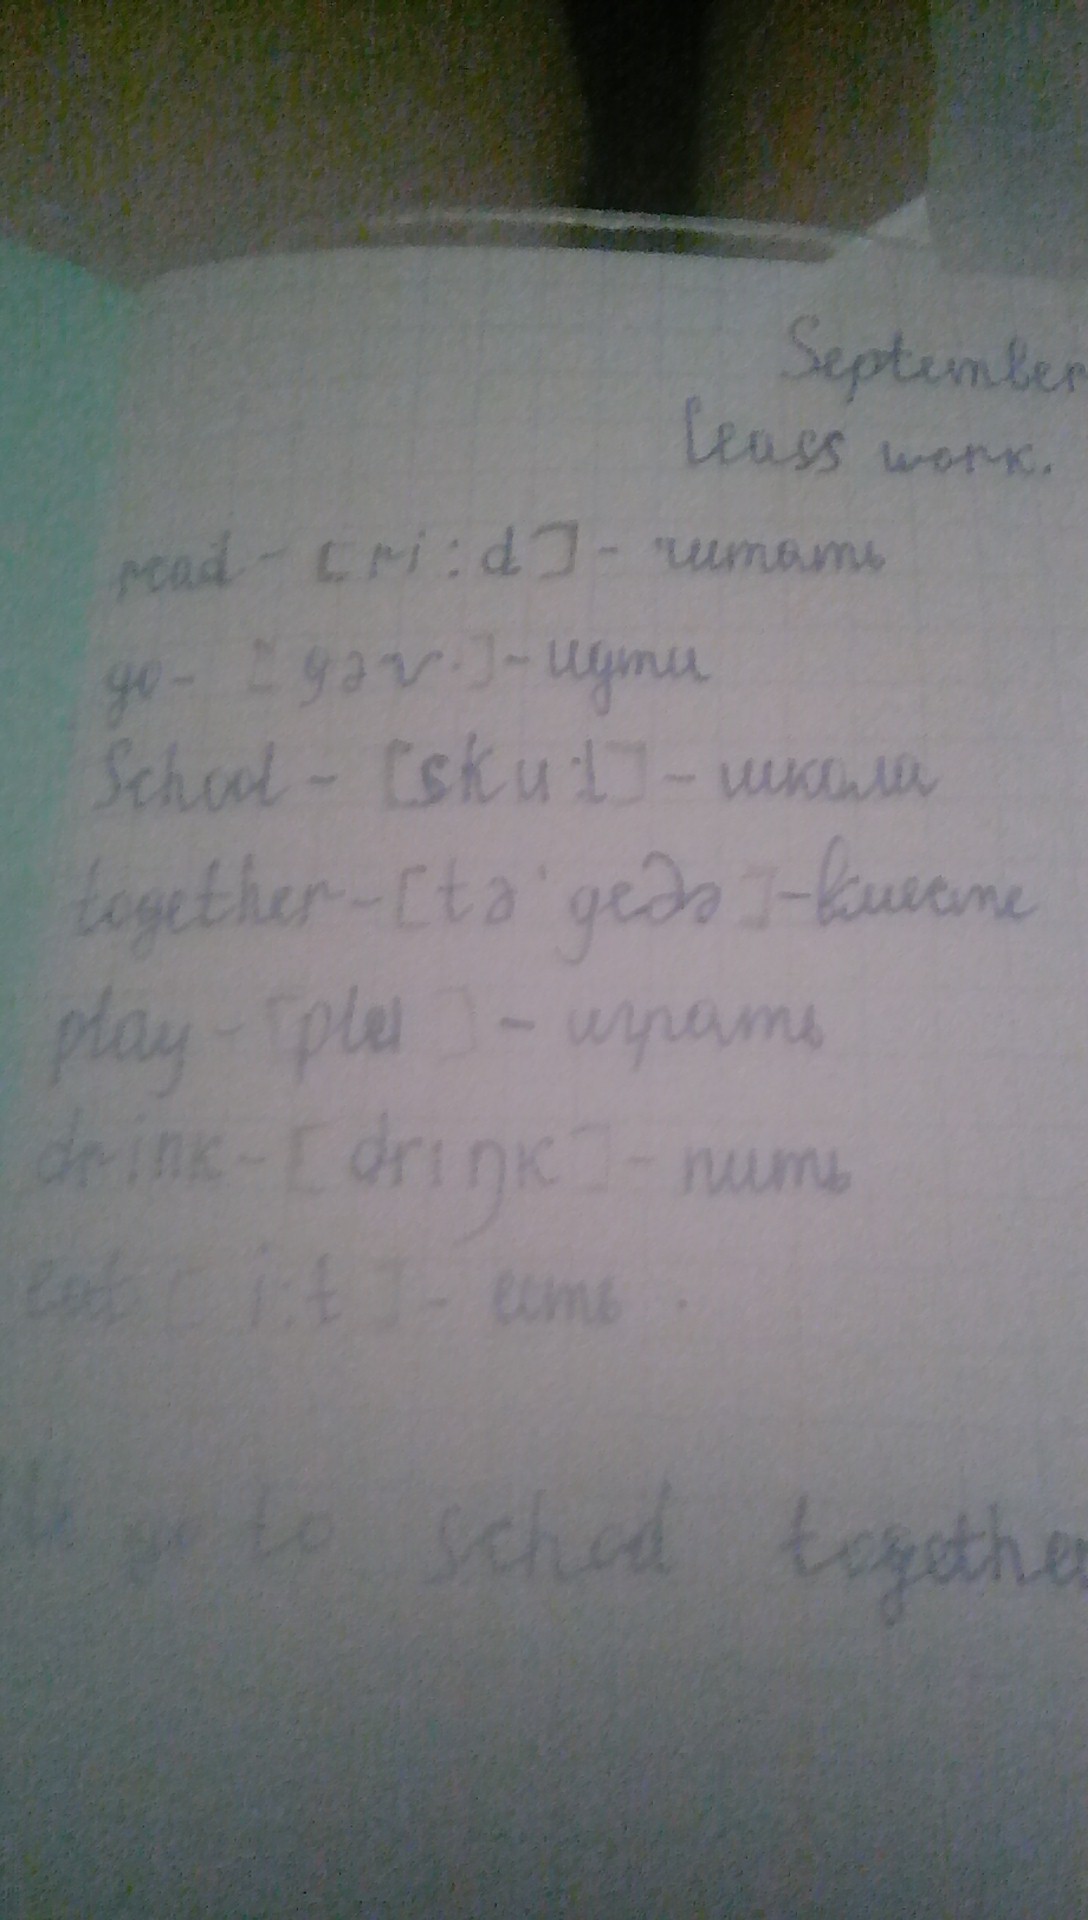 September
Class work.
read - [ri:d] - читать
go - [gəv.] - идти
School - [sku:l] - школа
together - [tə'geðə] - вместе
play - [plei] - играть
drink - [driŋk] - пить
eat [i:t] - есть.
go to school together